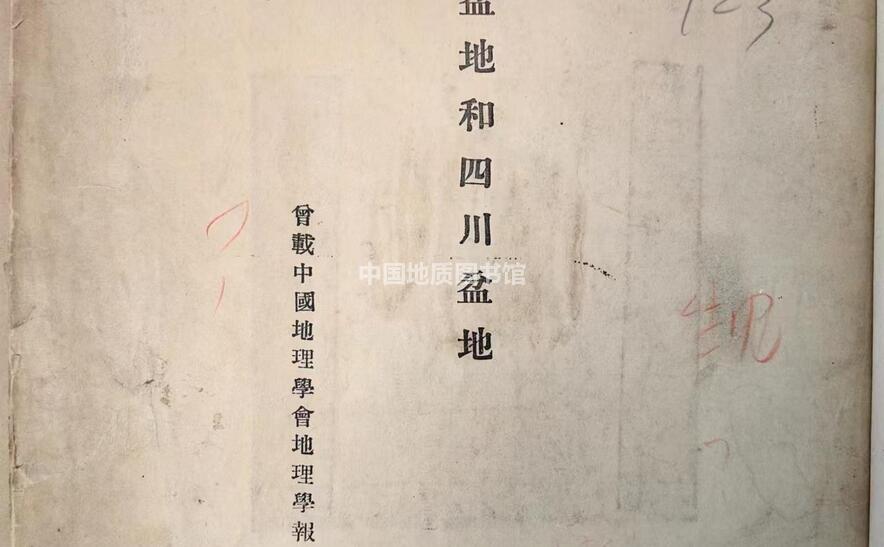 盆地和四川盆地
曾載中國地理學會地理學報
中国地质图书馆
123